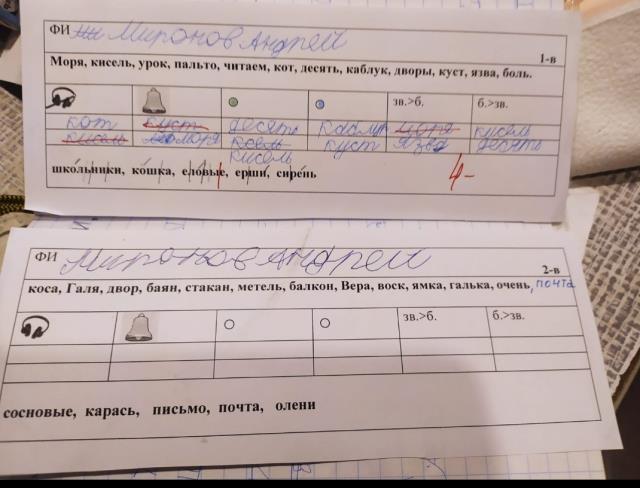 ФИ Миронов Андрей
1-в
Моря, кисель, урок, пальто, читаем, кот, десять, каблук, дворы, куст, язва, боль.
зв.>б. б.>зв.
кот куст десять каблук моря кисель
кисель моря кисель куст язва десять
кисель
школьники, кошка, еловые, ерши, сирень
4-
ФИ Миронов Андрей
2-в
коса, Галя, двор, баян, стакан, метель, балкон, Вера, воск, ямка, галька, очень, почта
зв.>б. б.>зв.
сосновые, карась, письмо, почта, олени